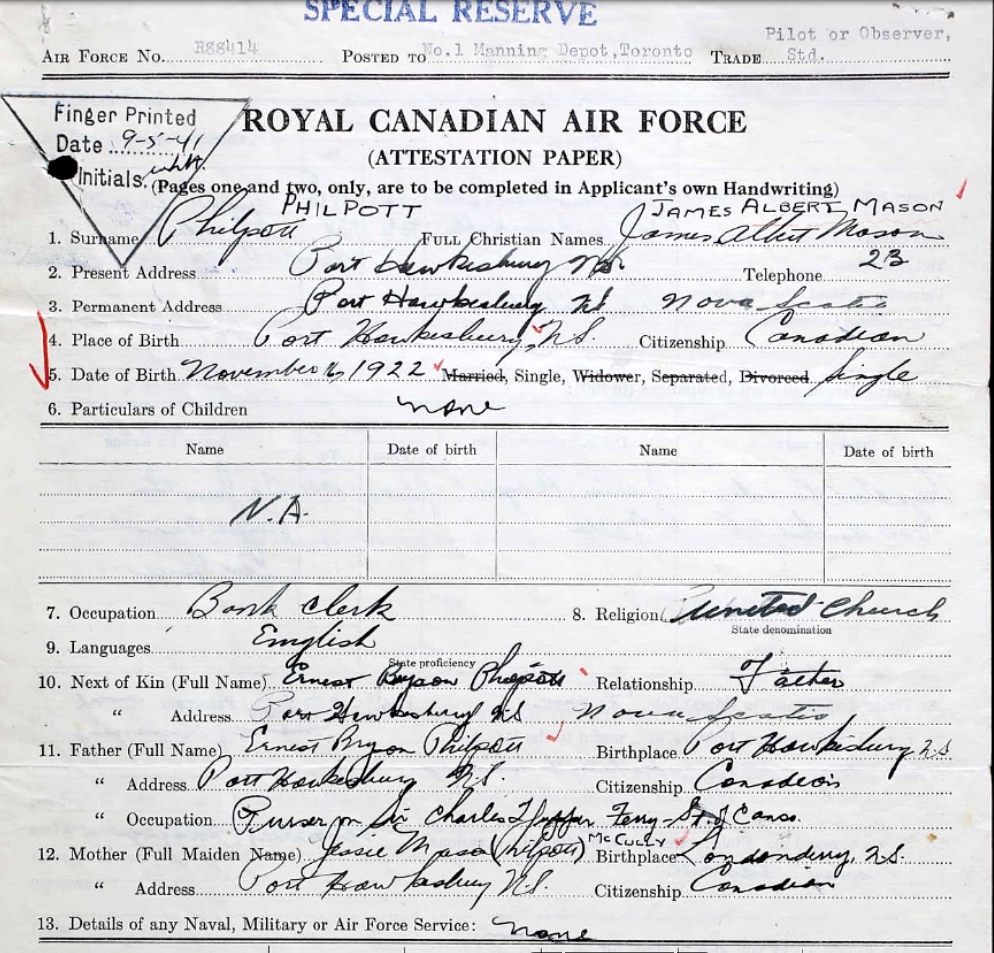 SPECIAL RESERVE
AIR FORCE NO. R88414 POSTED TO No.1 Manning Depot, Toronto TRADE Pilot or Observer, Std.
Finger Printed
Date 9-5-41
Initials.
ROYAL CANADIAN AIR FORCE
(ATTESTATION PAPER)
(Pages one and two, only, are to be completed in Applicant's own Handwriting)
PHILPOTT JAMES ALBERT MASON
1. Surname Philpott FULL Christian Names James Albert Mason
2. Present Address Port Hawkesbury N.S. Telephone 23
3. Permanent Address Port Hawkesbury NS Nova Scotia
4. Place of Birth Port Hawkesbury, N.S. Citizenship Canadian
5. Date of Birth November 16, 1922 Married, Single, Widower, Separated, Divorced Single
6. Particulars of Children none
Name Date of birth Name Date of birth
N.A.
7. Occupation Bank clerk 8. Religion United Church
State denomination
9. Languages English
State proficiency
10. Next of Kin (Full Name) Ernest Bryson Philpott Relationship Father
" Address Port Hawkesbury N.S Nova Scotia
11. Father (Full Name) Ernest Bryson Philpott Birthplace Port Hawkesbury N.S
" Address Port Hawkesbury N.S. Citizenship Canadian
" Occupation Purser on Sir Charles Tupper Ferry - St. of Canso.
McCULLY
12. Mother (Full Maiden Name) Jessie Mason (Philpott) Birthplace Londonderry, N.S.
" Address Port Hawkesbury N.S. Citizenship Canadian
13. Details of any Naval, Military or Air Force Service: none